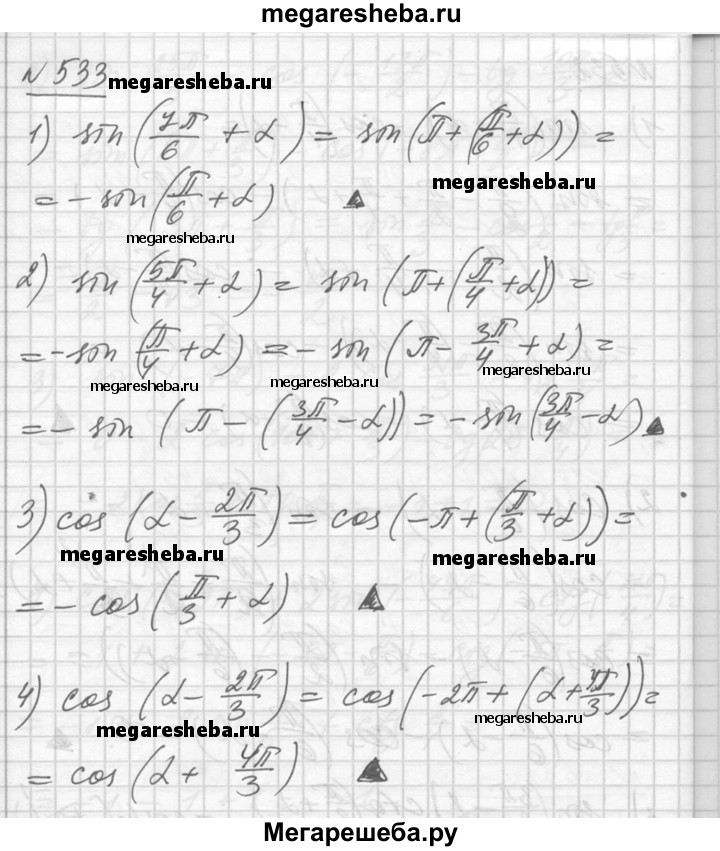 megaresheba.ru
N 533 megaresheba.ru
1) sin(7π/6 + α) = sin(π + (π/6 + α)) =
megaresheba.ru
= - sin(π/6 + α) ▲
megaresheba.ru
2) sin(5π/4 + α) = sin(π + (π/4 + α)) =
= - sin(π/4 + α) = - sin(π - 3π/4 + α) =
megaresheba.ru megaresheba.ru megaresheba.ru
= - sin(π - (3π/4 - α)) = - sin(3π/4 - α) ▲
3) cos(α - 2π/3) = cos(-π + (π/3 + α)) =
megaresheba.ru megaresheba.ru
= - cos(π/3 + α) ▲
4) cos(α - 2π/3) = cos(-2π + (α + 4π/3)) =
megaresheba.ru megaresheba.ru
= cos(α + 4π/3) ▲
Мегарешеба.ру